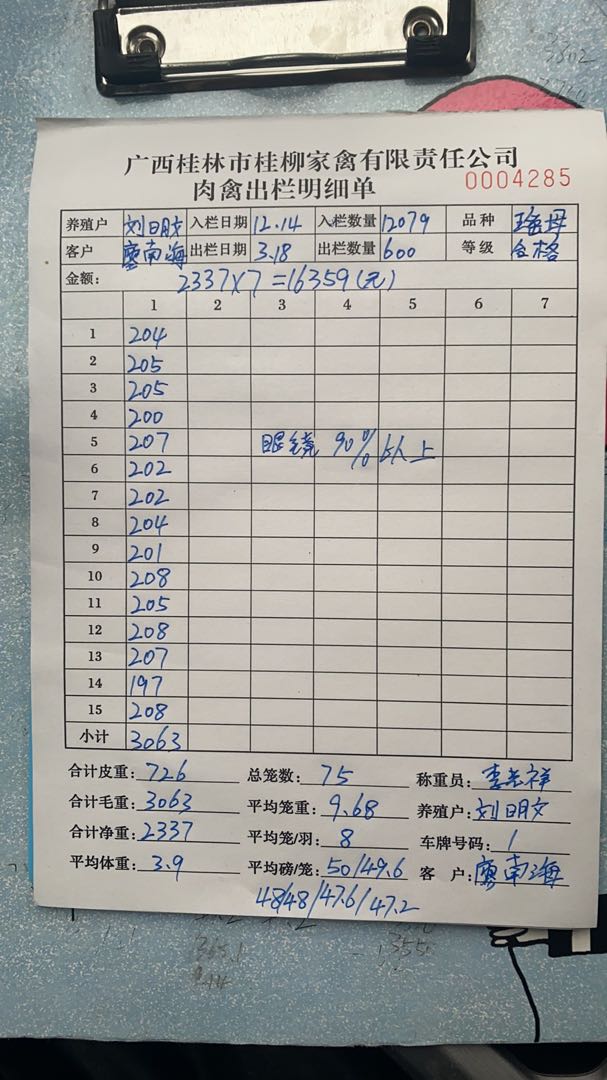 广西桂林市桂柳家禽有限责任公司
肉禽出栏明细单 0004285
养殖户 刘明文 入栏日期 12.14 入栏数量 12079 品种 瑶母
客户 廖南海 出栏日期 3.18 出栏数量 600 等级 合格
金额: 2337×7=16359(元)
1 2 3 4 5 6 7
1 204
2 205
3 205
4 200
5 207 眼镜 90% 以上
6 202
7 202
8 204
9 201
10 208
11 205
12 208
13 207
14 197
15 208
小计 3063
合计皮重: 726 总笼数: 75 称重员: 李 祥
合计毛重: 3063 平均笼重: 9.68 养殖户: 刘明文
合计净重: 2337 平均笼/羽: 8 车牌号码: /
平均体重: 3.9 平均磅/笼: 50/49.6 客 户: 廖南海
48/48/47.6/47.2
3302
365.1
1355